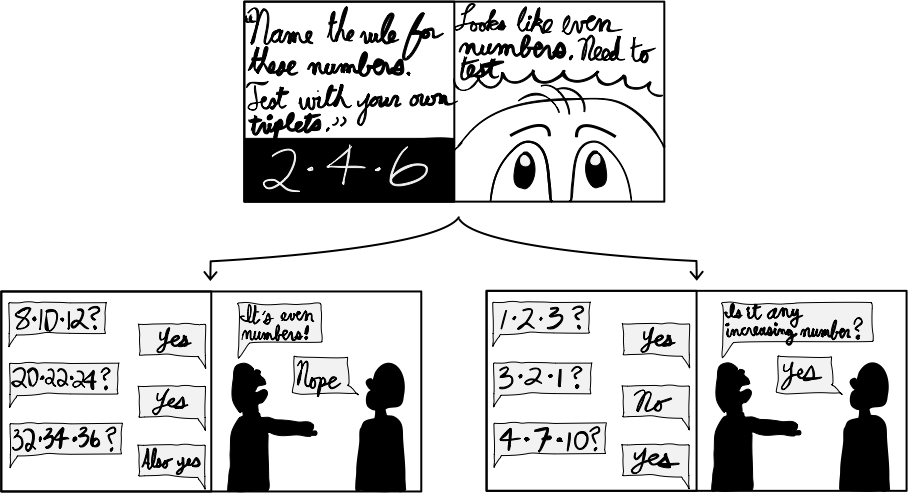 "Name the rule for
these numbers.
Test with your own
triplets."
2·4·6
Looks like even
numbers. Need to
test
8·10·12?
Yes
20·22·24?
Yes
32·34·36?
Also yes
It's even
numbers!
Nope
1·2·3?
Yes
3·2·1?
No
4·7·10?
Yes
Is it any
increasing number?
Yes